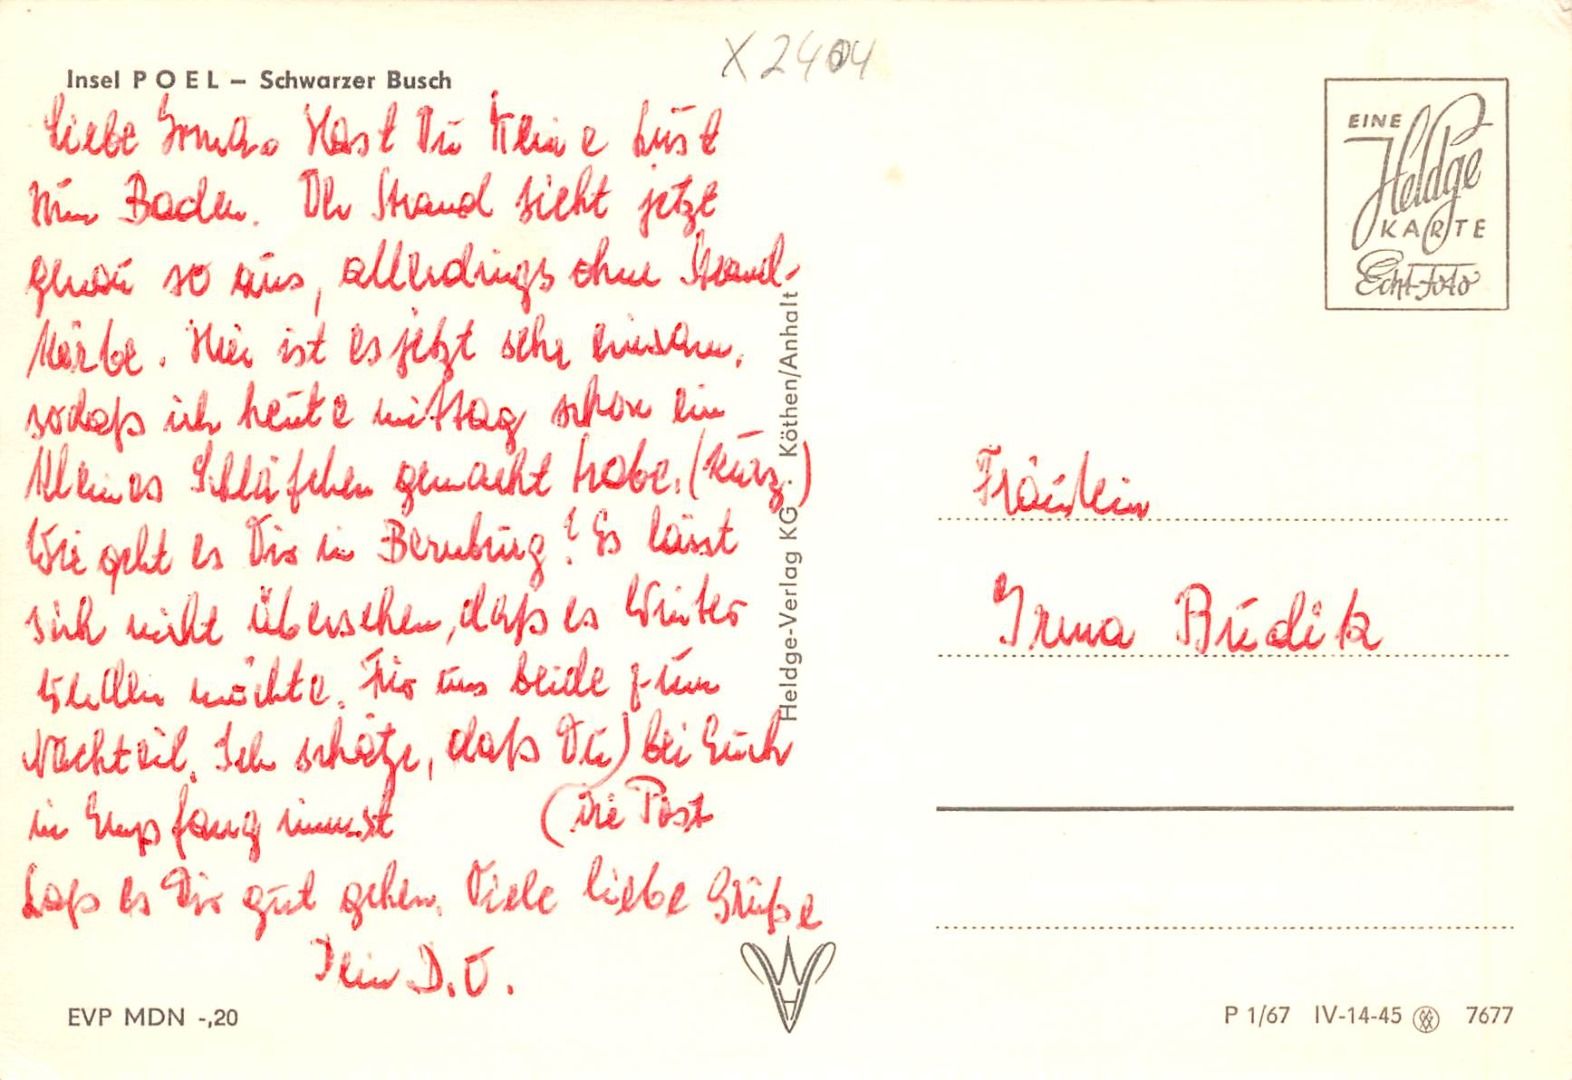 X 2404
Insel POEL – Schwarzer Busch
Liebe Irmchen Hast Du Kleine Lust
zum Baden. Der Strand sieht jetzt
genau so aus, allerdings ohne Strand-
körbe. Hier ist es jetzt sehr einsam,
sodaß ich heute mittag schon ein
kleines Schläfchen gemacht habe. (kurz)
Wie geht es Dir in Bernburg? Es lässt
sich nicht übersehen, daß es Winter
werden möchte. Für uns beide zum
Nachteil. Ich schätze, daß Du) bei Euch
in Empfang nimmst (die Post
Laß es Dir gut gehen. Viele liebe Grüße
Dein D.V.
EVP MDN -,20
Heldge-Verlag KG . Köthen/Anhalt
EINE
Heldge
KARTE
Echt-Foto
Fräulein
Irma Budik
P 1/67 IV-14-45 7677